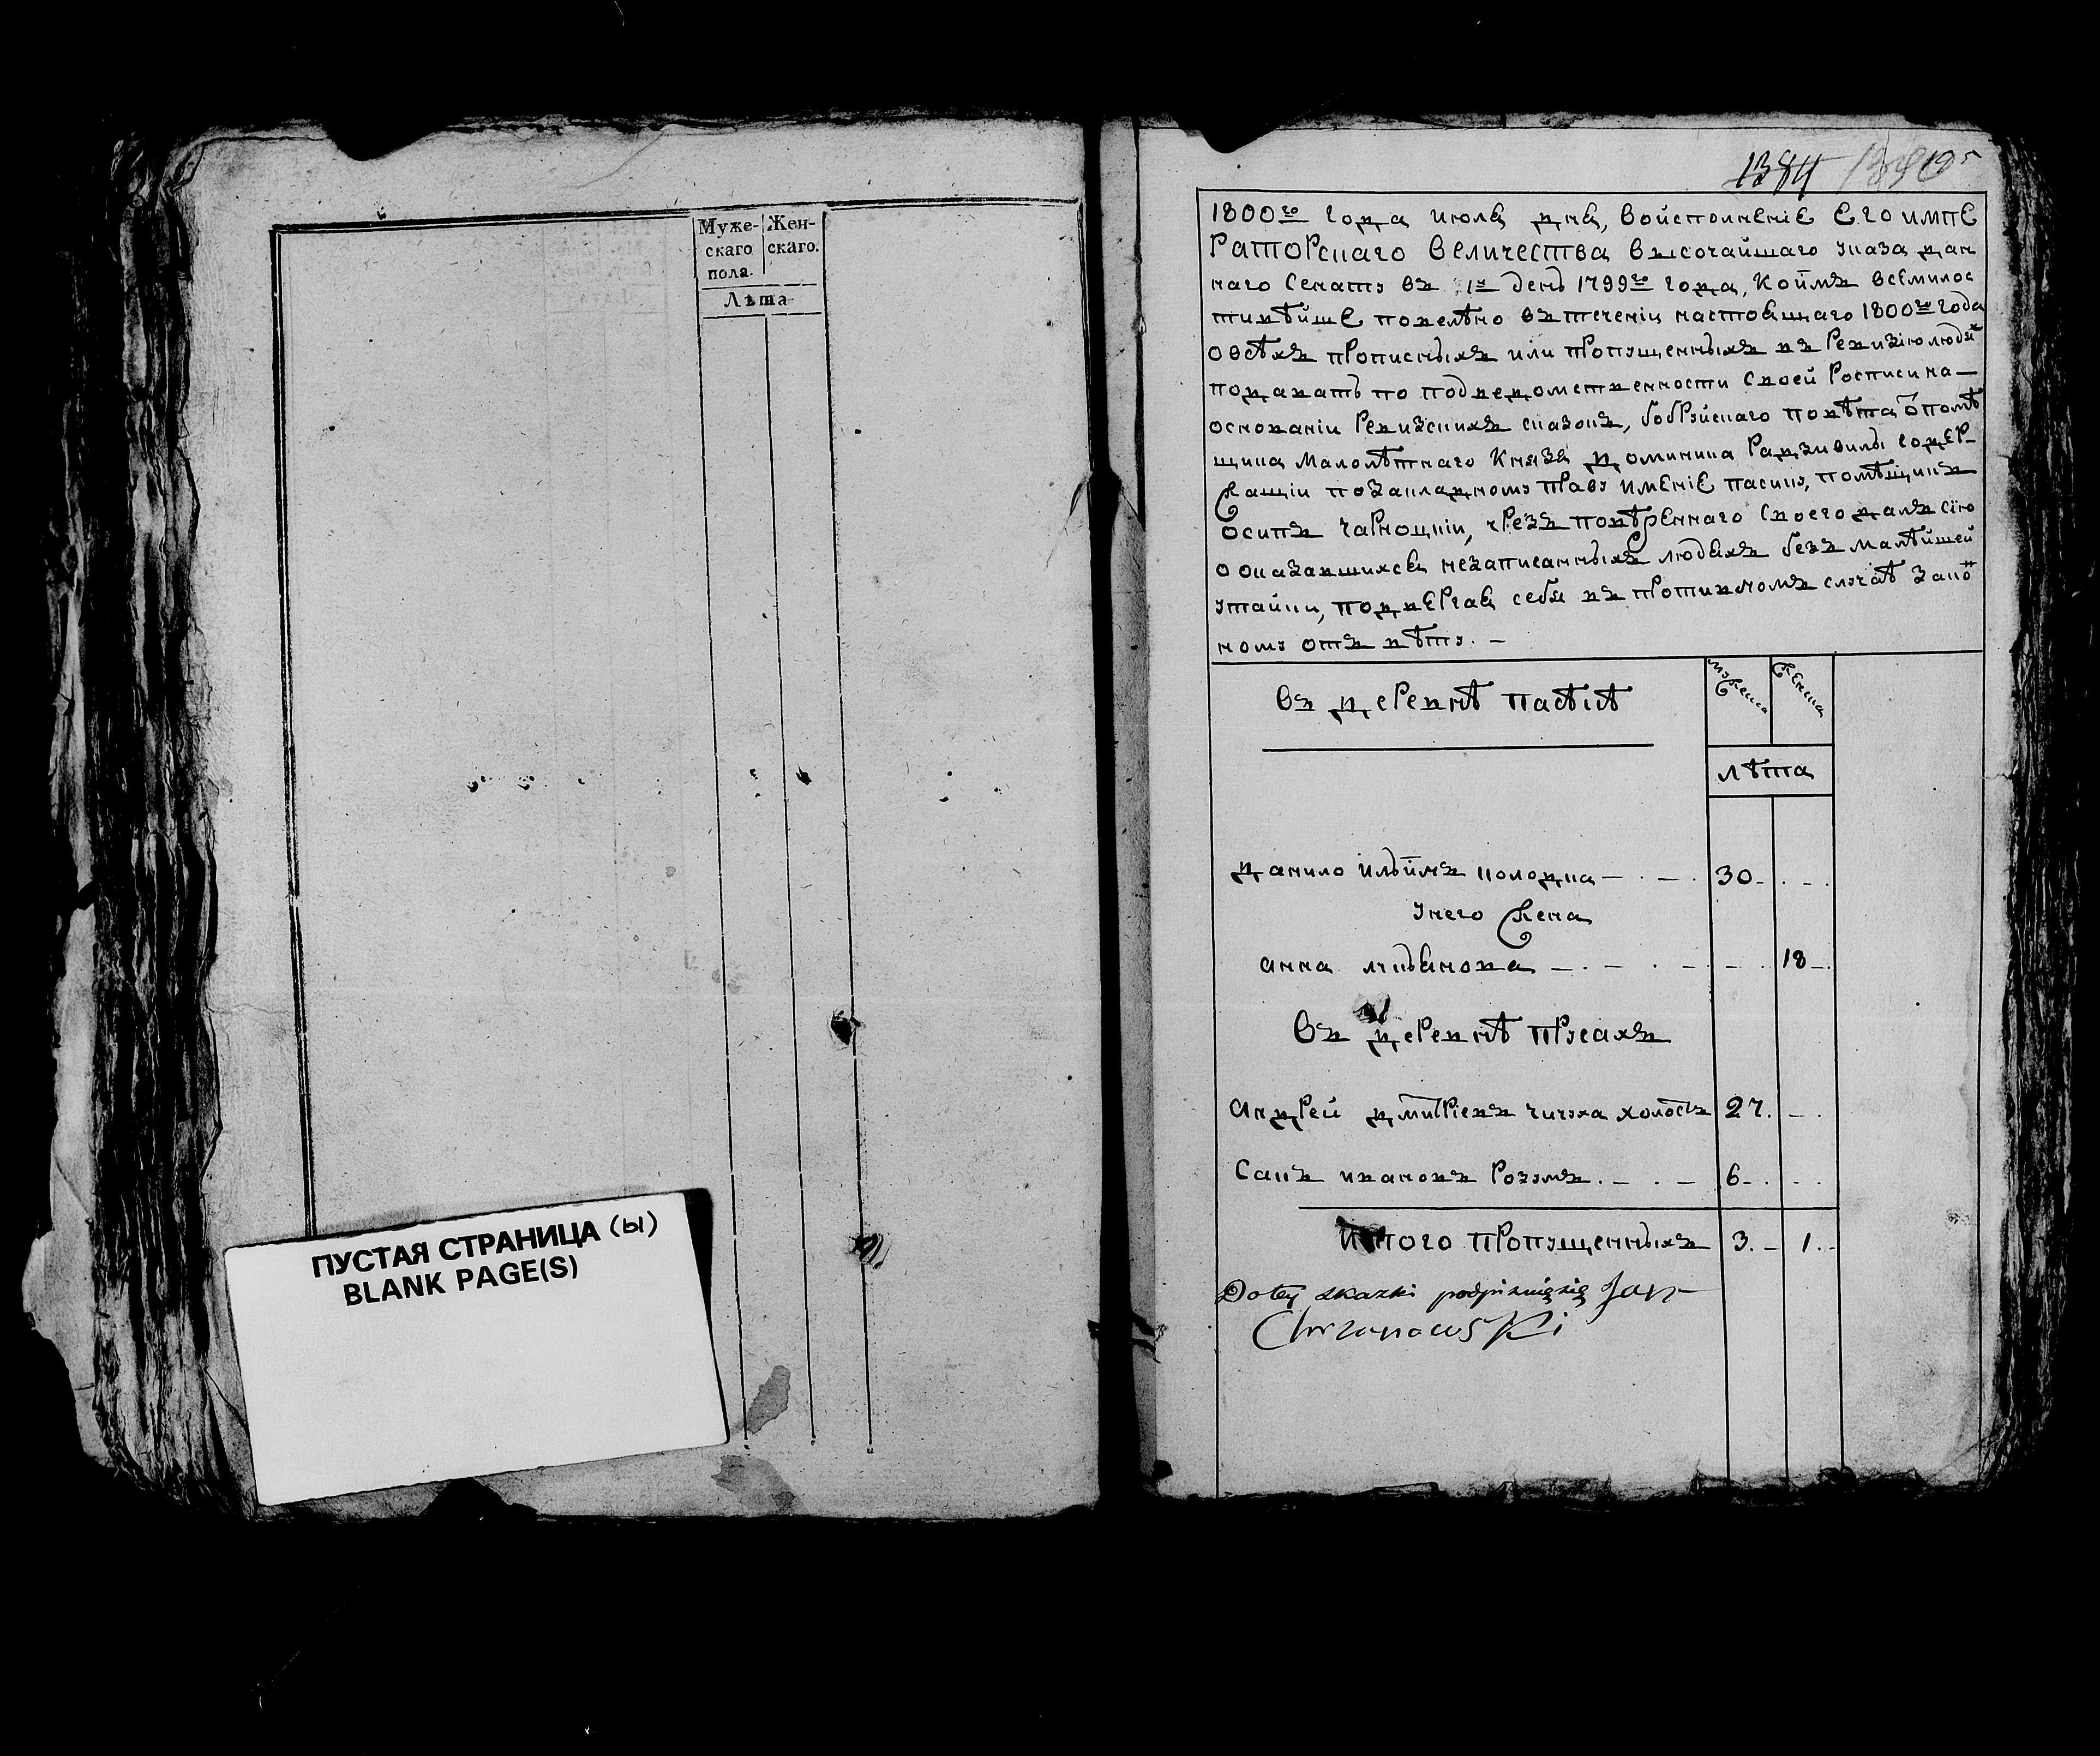 Муже-
скаго
пола.
Жен-
скаго.
Лѣта
ПУСТАЯ СТРАНИЦА (Ы)
BLANK PAGE(S)
1384
1800го года июля дня, воисполнение Его импе
раторскаго величества высочайшаго указа дан
наго Сенату въ 31й день 1799го года, коимъ всемилос
тивѣйше повелѣно втечении настоящаго 1800го года
овсѣхъ прописныхъ или пропущенныхъ въ Ревизію людей
подавать по подведомственности своей Росписи на—
основаніи Ревизскихъ сказокъ, бобруйскаго повѣта
щика Малолѣтнаго Князя доминика Радзивила содер-
жащіи позакладному праву имение пасику, помѣщикъ
осипъ Чарноцкіи, чрезъ повѣреннаго своего далъ сію
о оказавшихся незаписанныхъ людяхъ безъ малѣйшей
утайки, подвергая себя въ противномъ случаѣ
ному отвѣту. —
въ деревнѣ пасѣкѣ
мужеска
женска
лѣта
данило ильинъ колодка — . — . 30 - . - .
унего жена
анна лукьянова — . — . — - . 18 - .
Въ деревнѣ прусахъ
андрей дмитріевъ чичуха холостъ 27. - .
Сакъ ивановъ Розумъ . — . — 6 - . - .
итого пропущенныхъ 3. - 1. -
Do tey skazki podpisuię się Jan
Chrzanowski